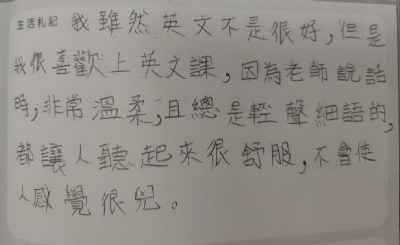 生活札記 我雖然英文不是很好,但是
我很喜歡上英文課,因為老師說話
時,非常溫柔,且總是輕聲細語的,
都讓人聽起來很舒服,不會使
人感覺很兇。